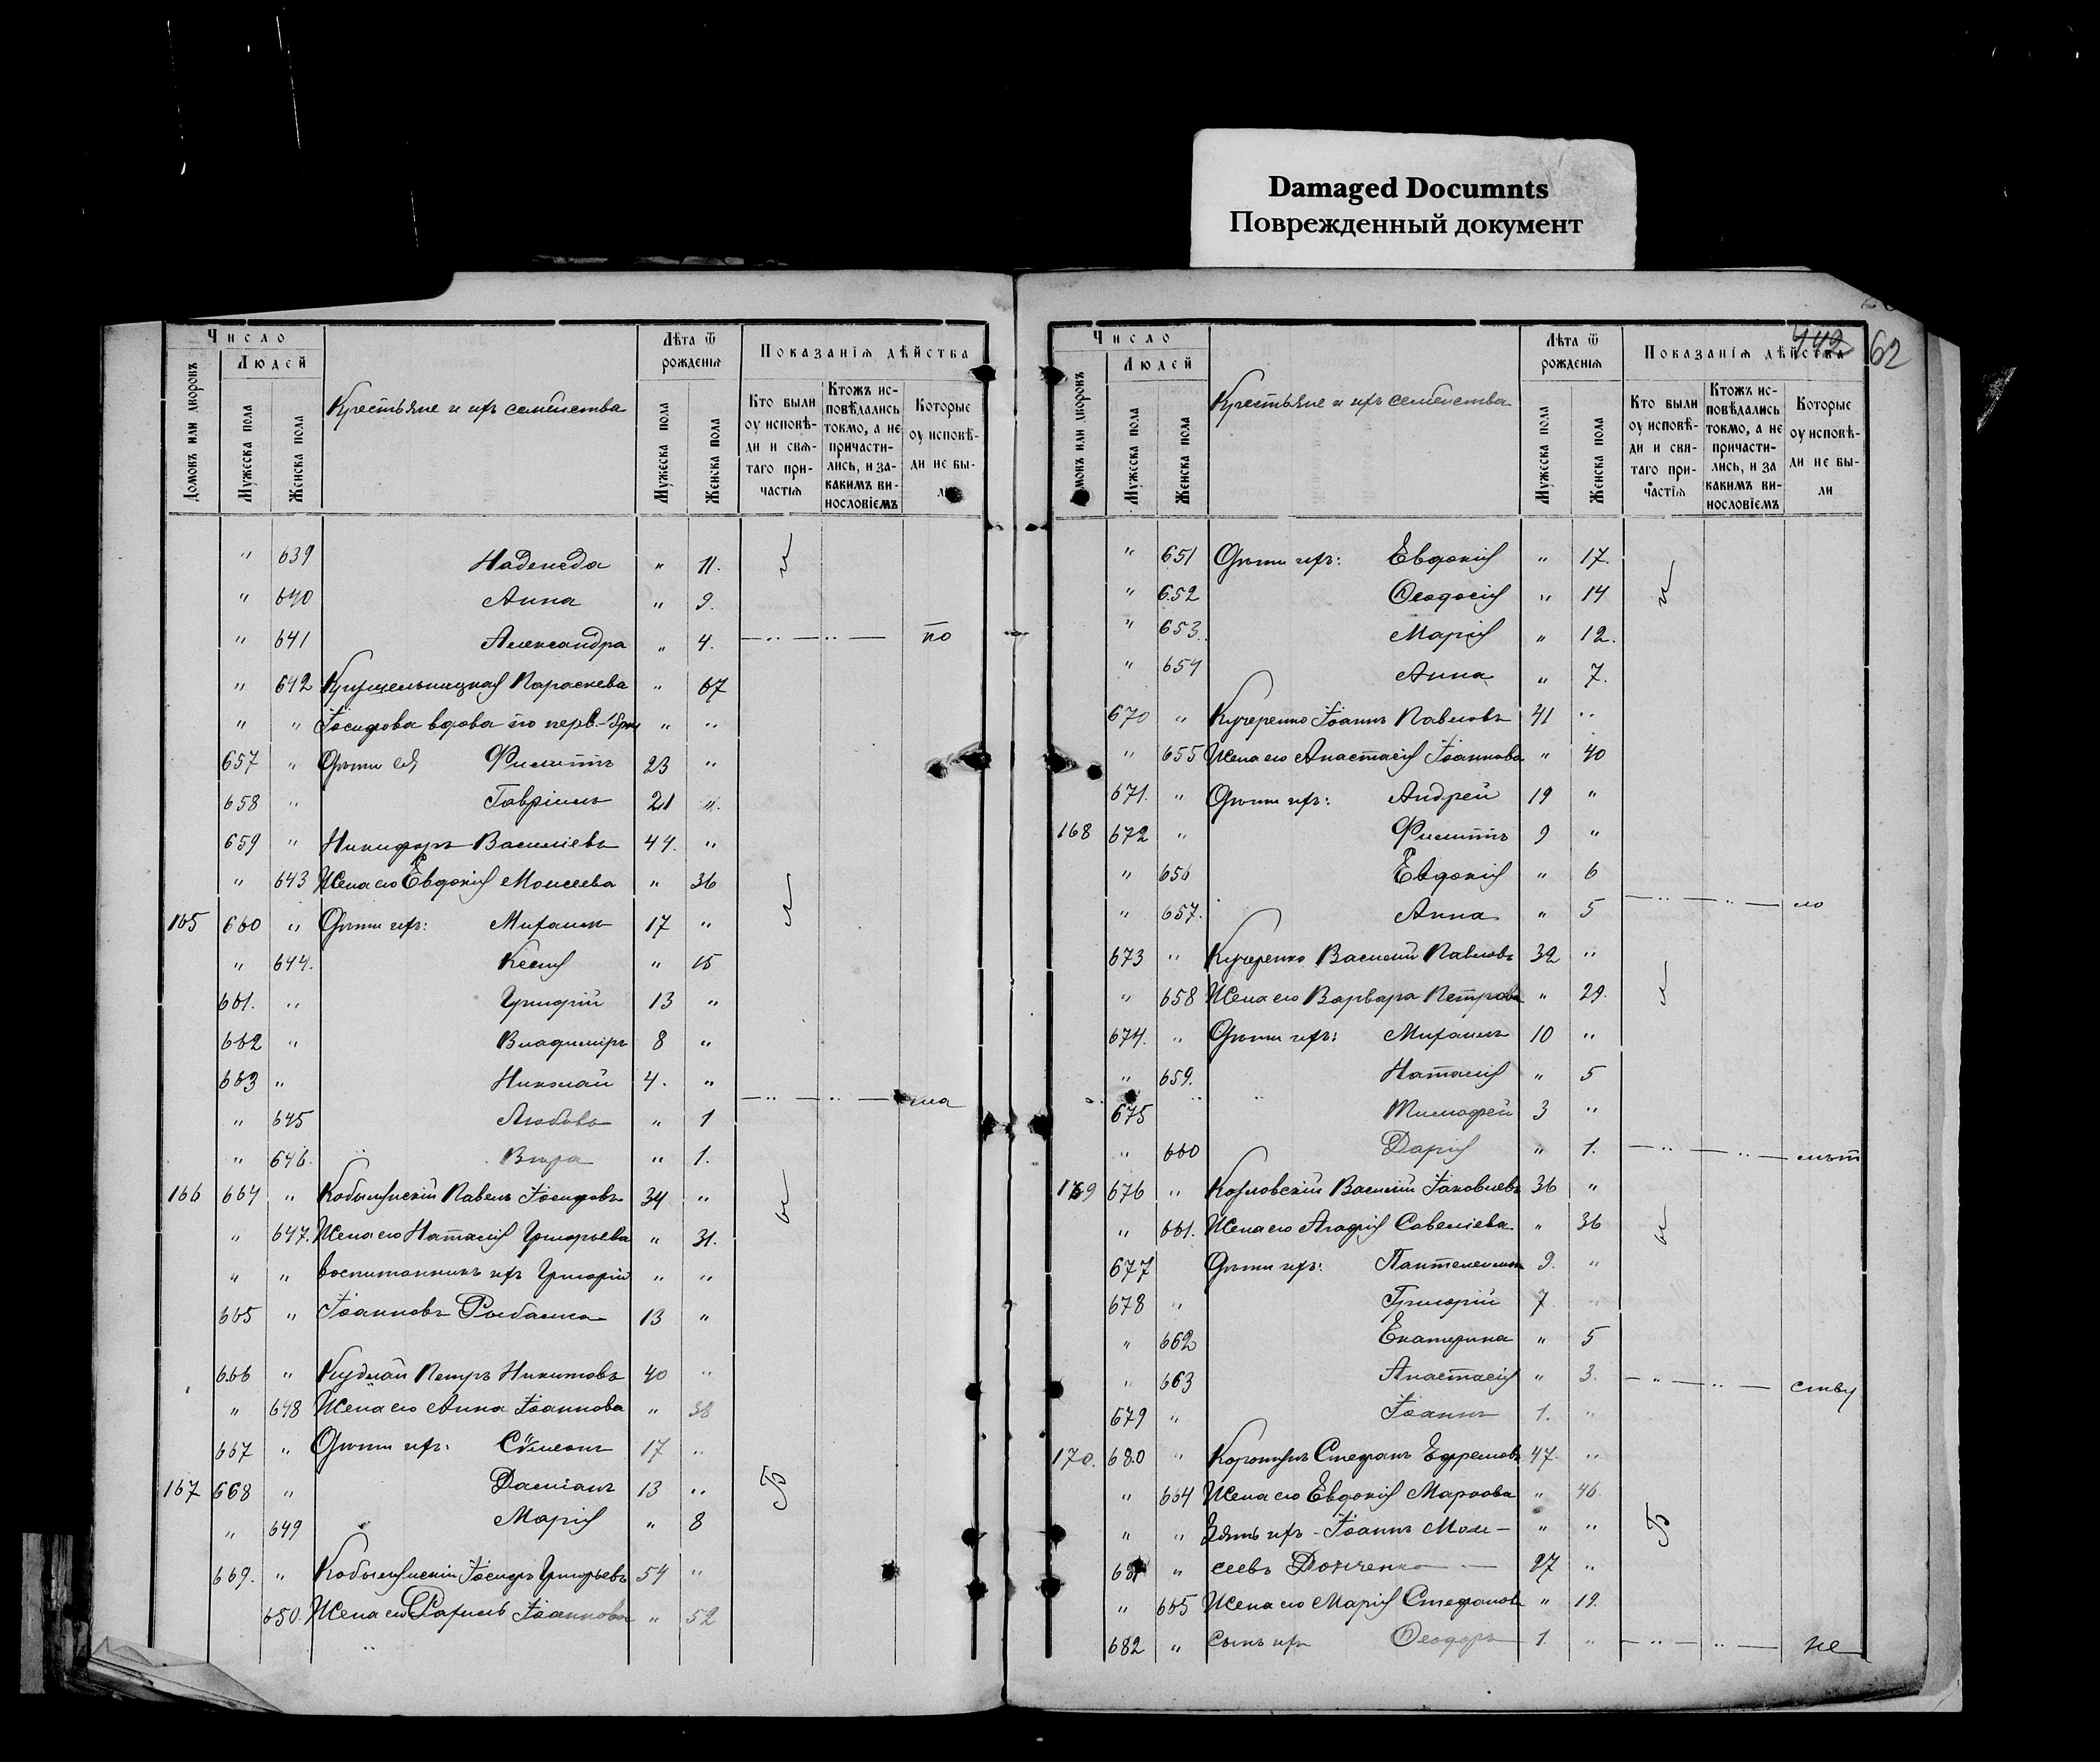 Damaged Documnts
Поврежденный документ
Число
Людей
Домовъ или дворовъ
Мужеска пола
Женска пола
Крестьяне и ихъ семейства
Лѣта ѿ рожденія
Мужеска пола
Женска пола
Показанія дѣйства
Кто были оу исповѣди и святаго причастія
Ктожъ исповѣдались токмо, а не причастились, и за какимъ винословіемъ
Которые оу исповѣди не были
" 639 Надежда " 11.
" 640 Анна " 9.
" 641 Александра " 4. по
" 642 Параскева " 67
" " Іосифова вдова по перв. " "
657 " Дѣти ея Филиппъ 23 "
658 " Гавріилъ 21 "
659 " Никифоръ Василіевъ 44. "
" 643 Жена его Евдокія Моисеева " 36
165 660 " Дѣти ихъ: Михаилъ 17 "
" 644. Ксенія " 15
661. " 13 "
662 " Владиміръ 8 "
663 " Николай 4. "
" 645 Любовь " 1
" 646. Вѣра " 1.
166 664 " Павелъ Іосифовъ 34 "
" 647. Жена его Наталія Григорьева " 31.
" " воспитанникъ ихъ Григорій " "
665 " Іоанновъ 13 "
666 " Петръ Никитовъ 40 "
" 648 Жена его Анна Іоаннова " 38
667 " Дѣти ихъ: Сѷмеонъ 17 "
167 668 " Даміанъ 13 " Б
" 649 Марія " 8
669. " Іосифъ Григорьевъ 54 "
650. Жена его Рахиль Іоаннова " 52
442 62
Число
Людей
Домовъ или дворовъ
Мужеска пола
Женска пола
Крестьяне и ихъ семейства
Лѣта ѿ рожденія
Мужеска пола
Женска пола
Показанія дѣйства
Кто были оу исповѣди и святаго причастія
Ктожъ исповѣдались токмо, а не причастились, и за какимъ винословіемъ
Которые оу исповѣди не были
" 651 Дѣти ихъ: Евдокія " 17.
" 652 Ѳеодосія " 14
" 653. Марія " 12.
" 654 Анна " 7.
670 " Кучеренко Іоаннъ Павловъ 41 "
" 655 Жена его Анастасія Іоаннова " 40
671. " Дѣти ихъ: Андрей 19 "
168 672 " Филиппъ 9 "
" 656 Евдокія " 6
" 657. Анна " 5
673 " Кучеренко Василій Павловъ 32 "
" 658 Жена его Варвара Петрова " 29.
674. " Дѣти ихъ: Михаилъ 10 "
" 659. Наталія " 5
675 " Тимофей 3 "
" 660 Дарія " 1.
169 676 " Козловскій Василій Іаковлевъ 36 "
" 661. Жена его Агафія Савеліева " 36
677 Дѣти ихъ: Пантелеимонъ 9. "
678 " Григорій 7 "
" 662 Екатерина " 5
" 663 Анастасія " 3.
679 " Іоаннъ 1. "
170. 680 " Стефанъ Ефремовъ 47. "
" 664 Жена его Евдокія Маркова " 46.
" " Зять ихъ - Іоаннъ Мои- " " Б
681 " сеевъ Донченко 27 "
" 665 Жена его Марія Стефанова " 19.
682 " Сынъ ихъ Ѳеодоръ 1. " не